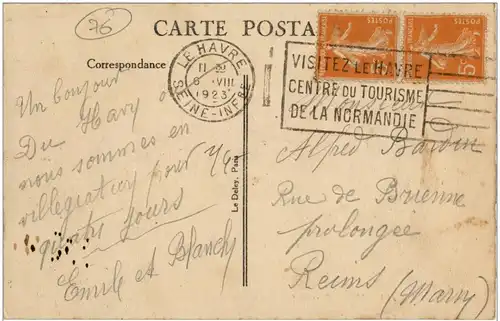 76
CARTE POSTA
Correspondance
LE HAVRE
11 30
6 · VIII
1923
SEINE-INFRE
VISITEZ LE HAVRE
CENTRE DU TOURISME
DE LA NORMANDIE
POSTES
POSTES
5c
Un bonjour
Du Havy
nous sommes en
villegiatuy pour
quatre jours
Emile et Blanchy
Le Deley, Paris
Monsieur
Alfred
Rue de Brienne
prolongée
Reims (Marny)